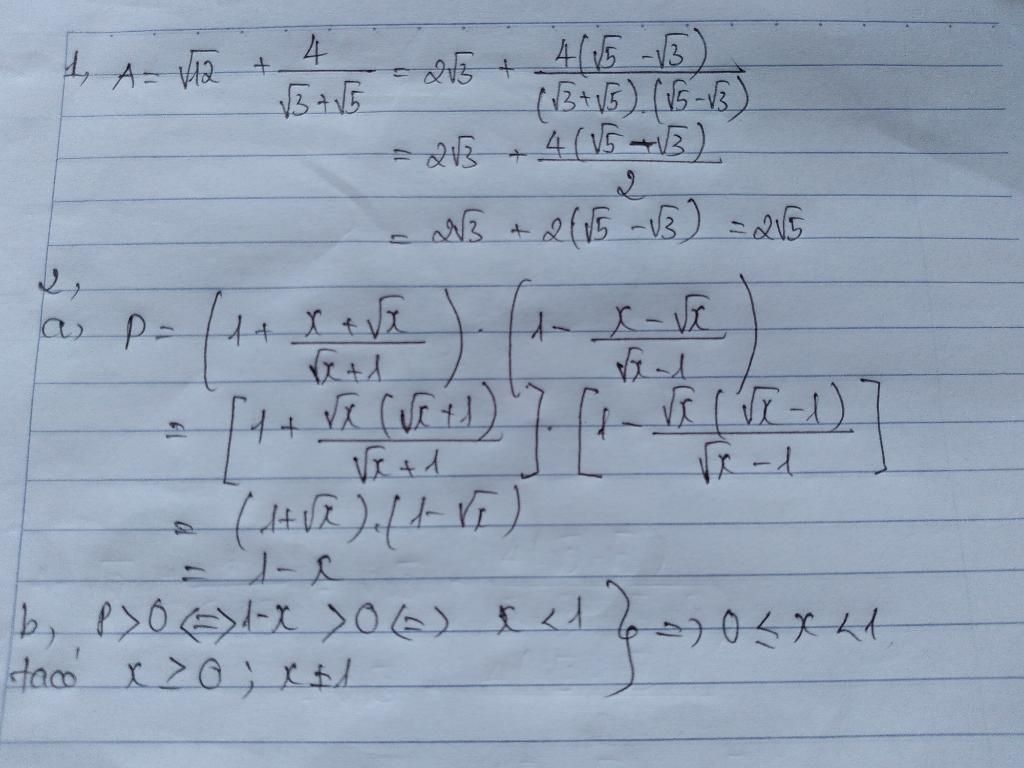 1, A = √12 + 4/(√3+√5) = 2√3 + 4(√5 -√3)/((√3+√5).(√5-√3))
= 2√3 + 4(√5 -√3)/2
= 2√3 + 2(√5 -√3) = 2√5
2,
a, P = (1 + (x + √x)/(√x+1)) . (1 - (x - √x)/(√x -1))
= [1 + √x (√x+1)/(√x+1)] . [1 - √x (√x -1)/(√x -1)]
= (1+√x).(1-√x)
= 1 - x
b, P>0 <=> 1-x >0 <=> x <1 } => 0 ≤ x <1
ta có x ≥ 0 ; x ≠ 1